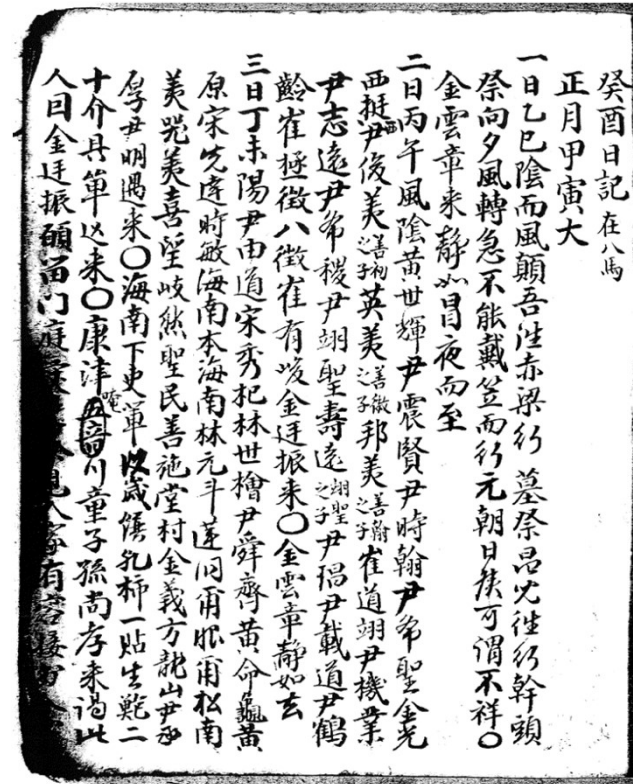 癸酉日記 在八馬
正月甲寅大
一日乙巳陰而風顚吾往赤梁行 墓祭昌兒往行幹頭
祭向夕風轉急不能戴笠而行元朝日候可謂不祥〇
金雲章来静如冒夜而至
二日丙午風陰黃世輝尹震賢尹時翰尹希聖金光
西挺尹俊美善初之子英美善徵之子邦美善翰之子崔道翊尹機業
尹志遠尹希稷尹翊聖壽遠翊聖之子尹珺尹載道尹鶴
齡崔極徵八徵崔有峻金廷振来〇金雲章静如去
三日丁未陽尹由道宋秀杞林世檜尹舜齊黃命龜黃
原宋先達時敏海南本海南林元斗蓮洞甫眼甫松南
美兕美喜望岐然聖民善施堂村金義方龍山尹承
厚尹明遇来〇海南下吏軍以歲饌乹柿一貼生鷄二
十介具單送来〇康津唵川童子孫尚存来謁此
人曰金廷振願留門庭